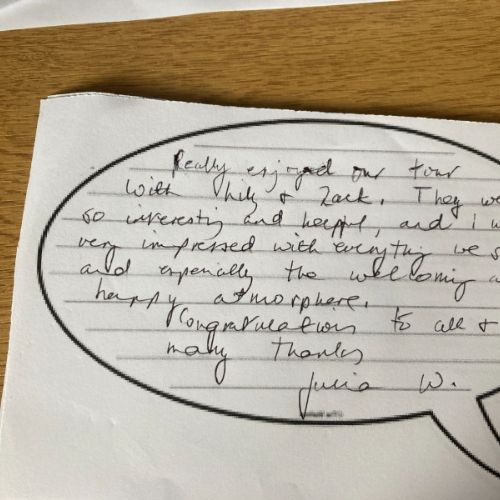 Really enjoyed our tour
with Lily + Zack. They we
so interesting and helpful, and I w
very impressed with everything we s
and especially the welcoming a
happy atmosphere.
Congratulations to all +
many thanks
Julia W.